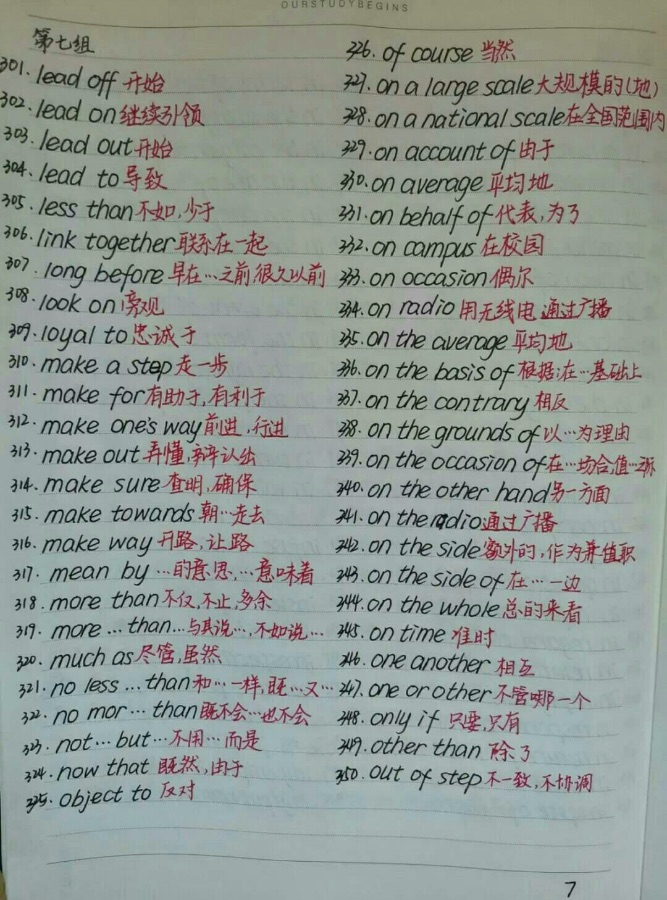 OURSTUDYBEGINS
第七组
301. lead off 开始
302. lead on 继续引领
303. lead out 开始
304. lead to 导致
305. less than 不如,少于
306. link together 联系在一起
307. long before 早在…之前 很久以前
308. look on 旁观
309. loyal to 忠诚于
310. make a step 走一步
311. make for 有助于,有利于
312. make one's way 前进,行进
313. make out 弄懂,辨认出
314. make sure 查明,确保
315. make towards 朝…走去
316. make way 开路,让路
317. mean by …的意思,…意味着
318. more than 不仅,不止,多余
319. more … than… 与其说…,不如说…
320. much as 尽管,虽然
321. no less … than 和…一样,既…又…
322. no mor… than 既不会…也不会
323. not… but… 不用…而是
324. now that 既然,由于
325. object to 反对
326. of course 当然
327. on a large scale 大规模的(地)
328. on a national scale 在全国范围内
329. on account of 由于
330. on average 平均地
331. on behalf of 代表,为了
332. on campus 在校园
333. on occasion 偶尔
334. on radio 用无线电 通过广播
335. on the average 平均地
336. on the basis of 根据;在…基础上
337. on the contrary 相反
338. on the grounds of 以…为理由
339. on the occasion of 在…场合,值…之际
340. on the other hand 另一方面
341. on the radio 通过广播
342. on the side 额外的,作为兼值职
343. on the side of 在…一边
344. on the whole 总的来看
345. on time 准时
346. one another 相互
347. one or other 不管哪一个
348. only if 只要,只有
349. other than 除了
350. out of step 不一致,不协调
7